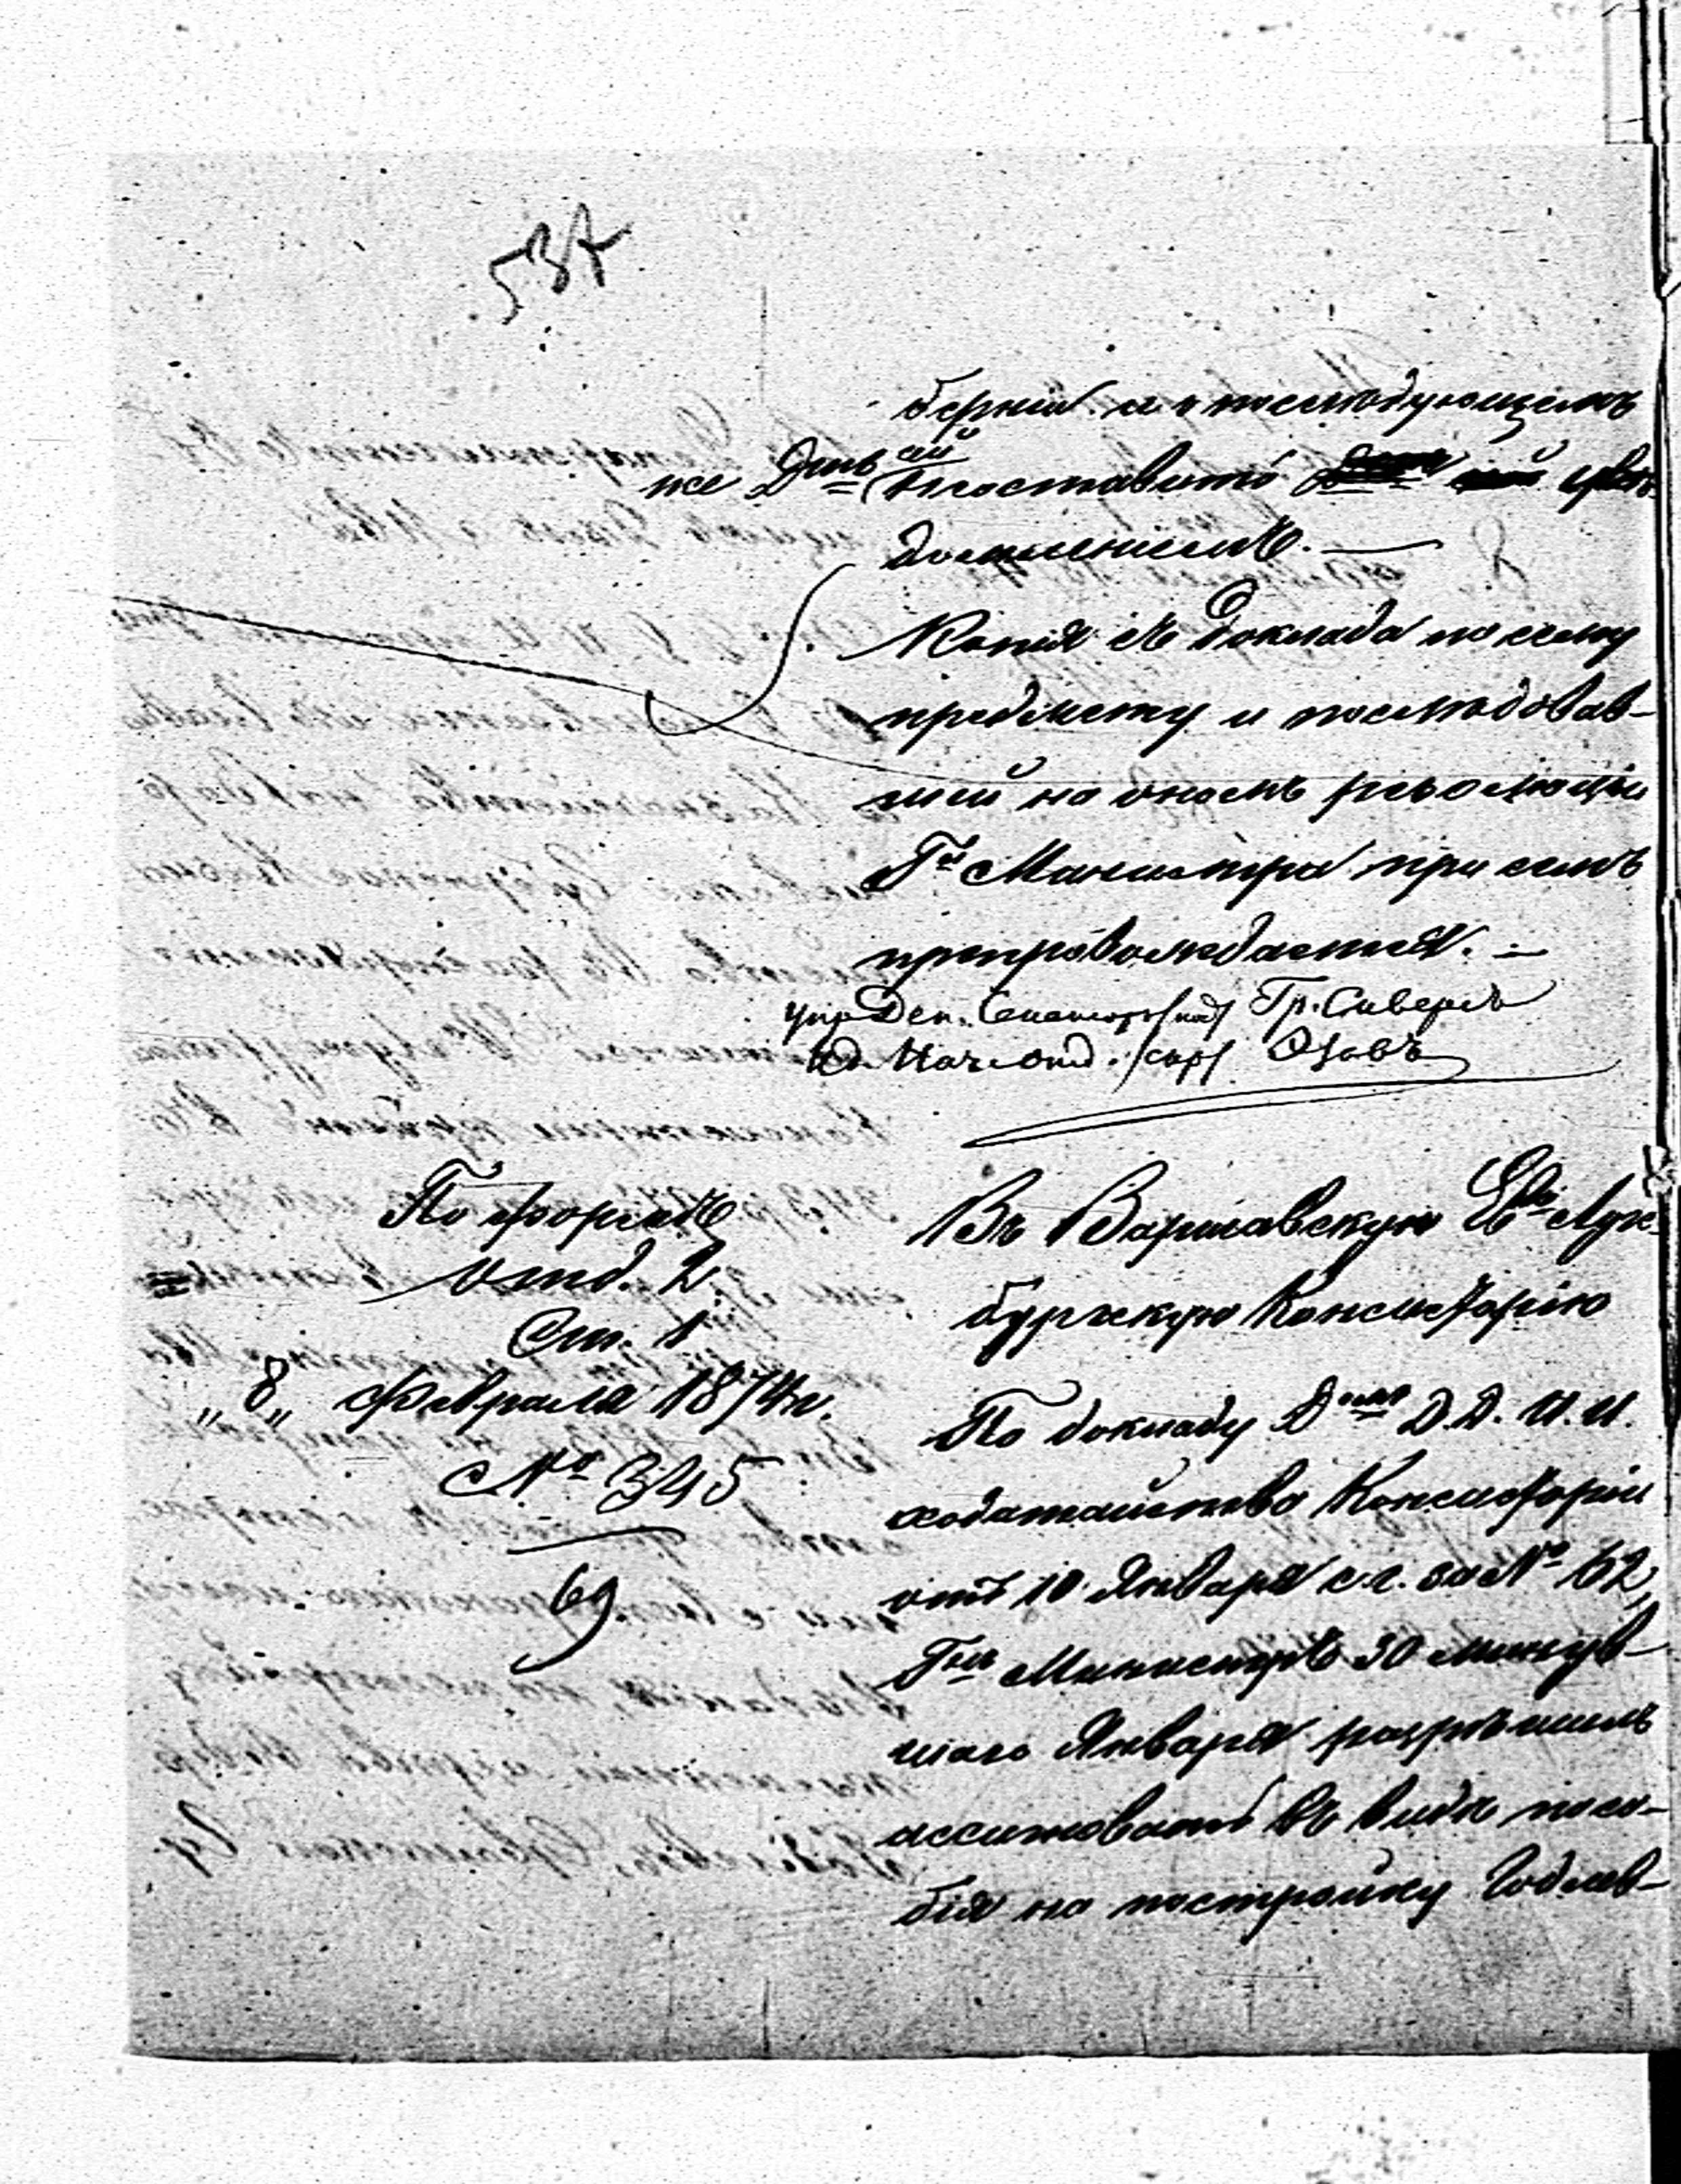 537
берніи и о послѣдующемъ
же Д-тъ сей поставить увѣ-
домленіемъ.
Копія съ доклада по сему
предмету и послѣдовав-
шей на ономъ резолюціи
Г-на Министра при семъ
препровождается.
Упр. Деп. Сенаторъ (под) Гр. Сиверсъ
Нач. отд. (скр)
По формѣ
отд. 2
Ст. 1
„8„ Февраля 1874 г.
№ 345
69
Въ Варшавскую Ев. Аугс-
бургскую Консисторію
По докладу Д-мъ Д.Д. И.И.
ходатайства Консисторіи
отъ 10 Января с.г. за № 62,
Г-нъ Министръ 30 минув-
шаго Января разрѣшилъ
ассигновать въ видѣ посо-
бія на постройку Годлев-